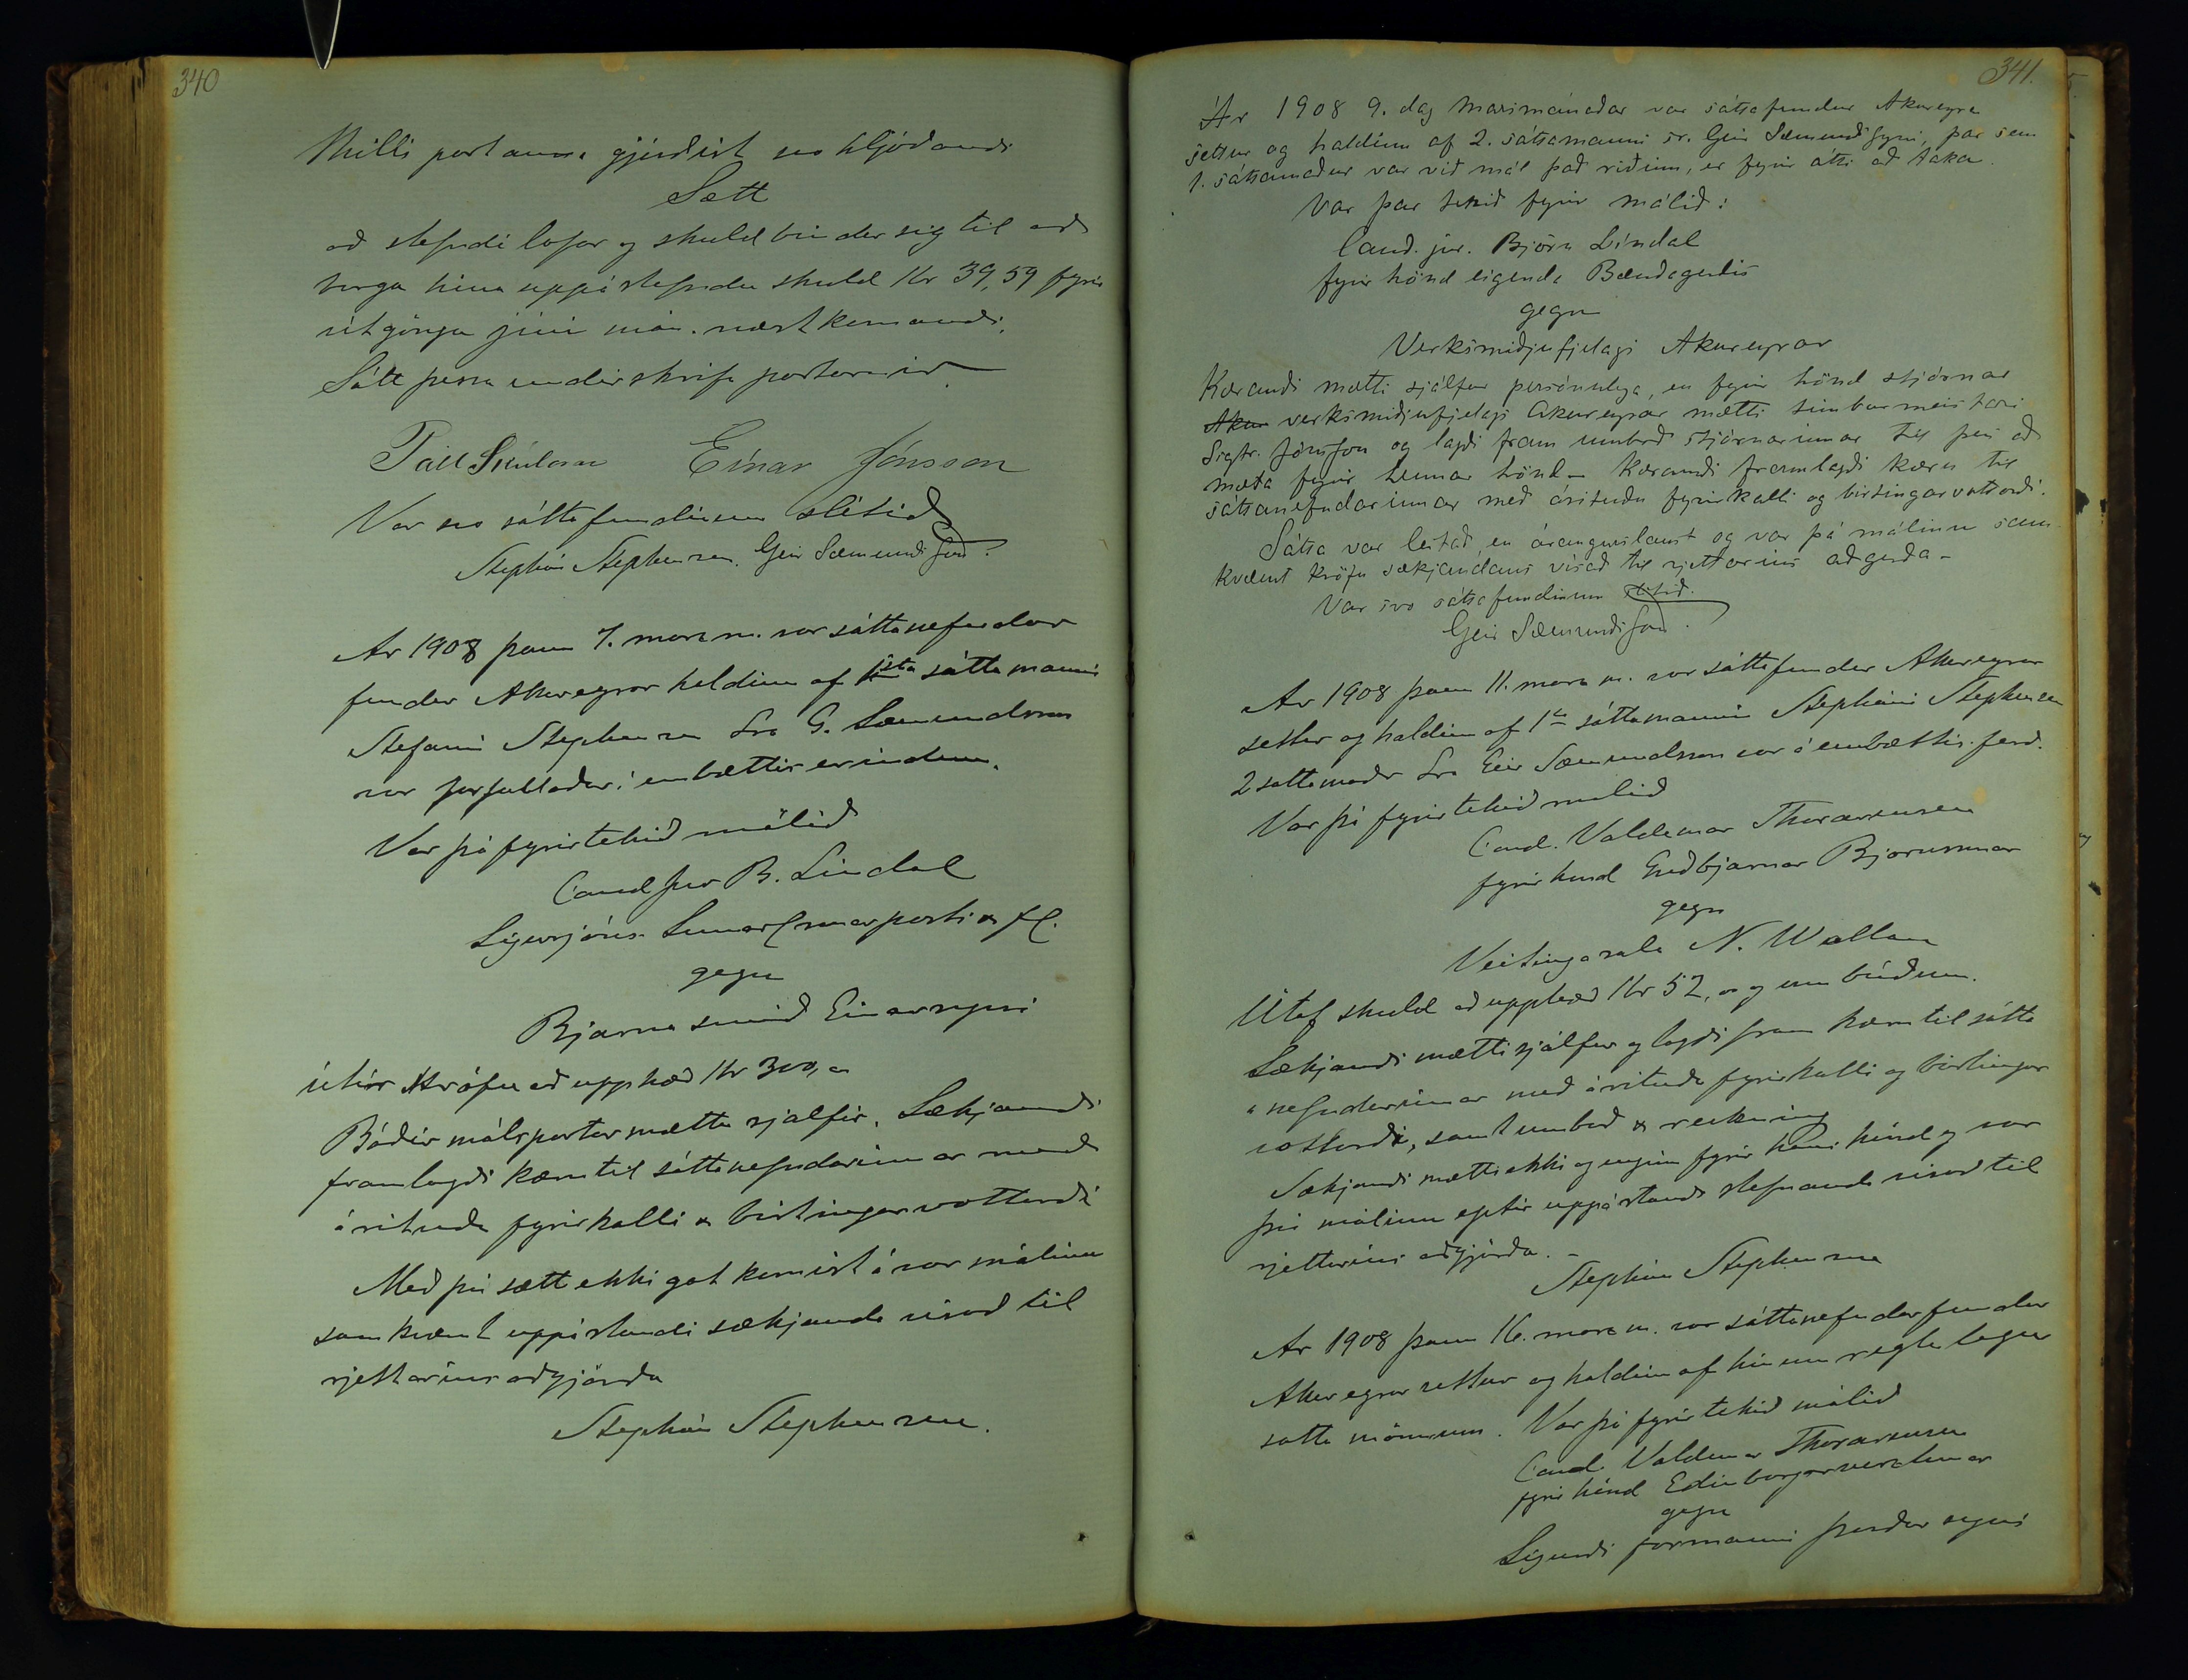 340
Milli partanna gjörðist svo hljóðandi
Sætt
að stefndi lofar og skuldbindur sig til að
borga hina uppástefndu skuld Kr 39,59 fyrir
útgöngu júní mán. næstkomandi.
Sátt þessa undirskrifa partarnir
Páll Skúlason Einar Jónsson
Var svo sáttafundinum slitið
Stephán Stephensen. Geir Sæmundsson.
Ár 1908 þann 7. marz m. var sáttanefndar
fundur Akureyrar haldinn af 1sta sáttamanni
Stefáni Stephensen Sra G. Sæmundsson
var forfallaður í embættiserindum.
Var þá fyrirtekið málið
Cand jur B. Lindal
Sigurjóns
gegn
Bjarna smið Einarssyni
útúr kröfu að upphæð Kr 300,00
Báðir málspartar mættu sjálfir. Sækjandi
framlagði kæru til sáttanefndarinnar með
árituðu fyrirkalli & birtingarvottorði
Með því sætt ekki gat komist á var málinu
samkvæmt uppástandi sækjanda vísað til
rjettarins aðgjörða
Stephán Stephensen.
341.
Ár 1908 9. dag marsmánaðar var sáttafundur Akureyra
settur og haldinn af 2. sáttamanni sr. Geir Sæmundssyni, þar sem
1. sáttamaður var við mál það riðinn, er fyrir átti að taka.
Var þar tekið fyrir málið:
Cand. jur. Björn Líndal
fyrir hönd eigenda Bændagerðis
gegn
Verksmiðjufjelagi Akureyrar
Kærandi mætti sjálfur persónulega, en fyrir hönd stjórnar
Akur verksmiðjufjelags Akureyrar mætti timburmeistari
Sigtr. Jónsson og lagði fram umboð stjórnarinnar til þess að
mæta fyrir hennar hönd - Kærandi framlagði kæru til
sáttanefndarinnar með árituðu fyrirkalli og birtingarvottorði.
Sátta var leitað, en árangurslaust og var þá málinu sam-
kvæmt kröfu sækjandans vísað til rjettarins aðgerða -
Var svo sáttafundinum slitið.
Geir Sæmundsson.
Ár 1908 þann 11. marz m. var sáttafundur Akureyrar
settur og haldinn af 1sta sáttamanni Stepháni Stephensen
2 sattamaðr Sra Geir Sæmundsson var á embættisferð.
Var þá fyrirtekið málið
Cand. Valdemar Thorarensen
fyrir hönd Guðbjarnar Björnssonar
gegn
Veitingasala N. Wallan
Útaf skuld að upphæð Kr 52,00 og um búðum.
Sækjandi mætti sjálfur og lagði fram kæru til sátta
nefndarinnar með árituðu fyrirkalli og birtingar
vottorði, samt umboð & reikning
Sækjandi mætti ekki og enginn fyrir hans hönd og var
því málinu eptir uppástandi stefnanda vísað til
rjettarins aðgjörða. -
Stephán Stephensen
Ár 1908 þann 16. marz m. var sáttanefndarfundur
Akureyrar settur og haldinn af hinum reglulegu
satta mönnum. Var þá fyrirtekið málið
Cand. Valdemar Thorarensen
fyrir hönd Edinborgarverzlunar
gegn
Sigurði formanni Þórðarsyni